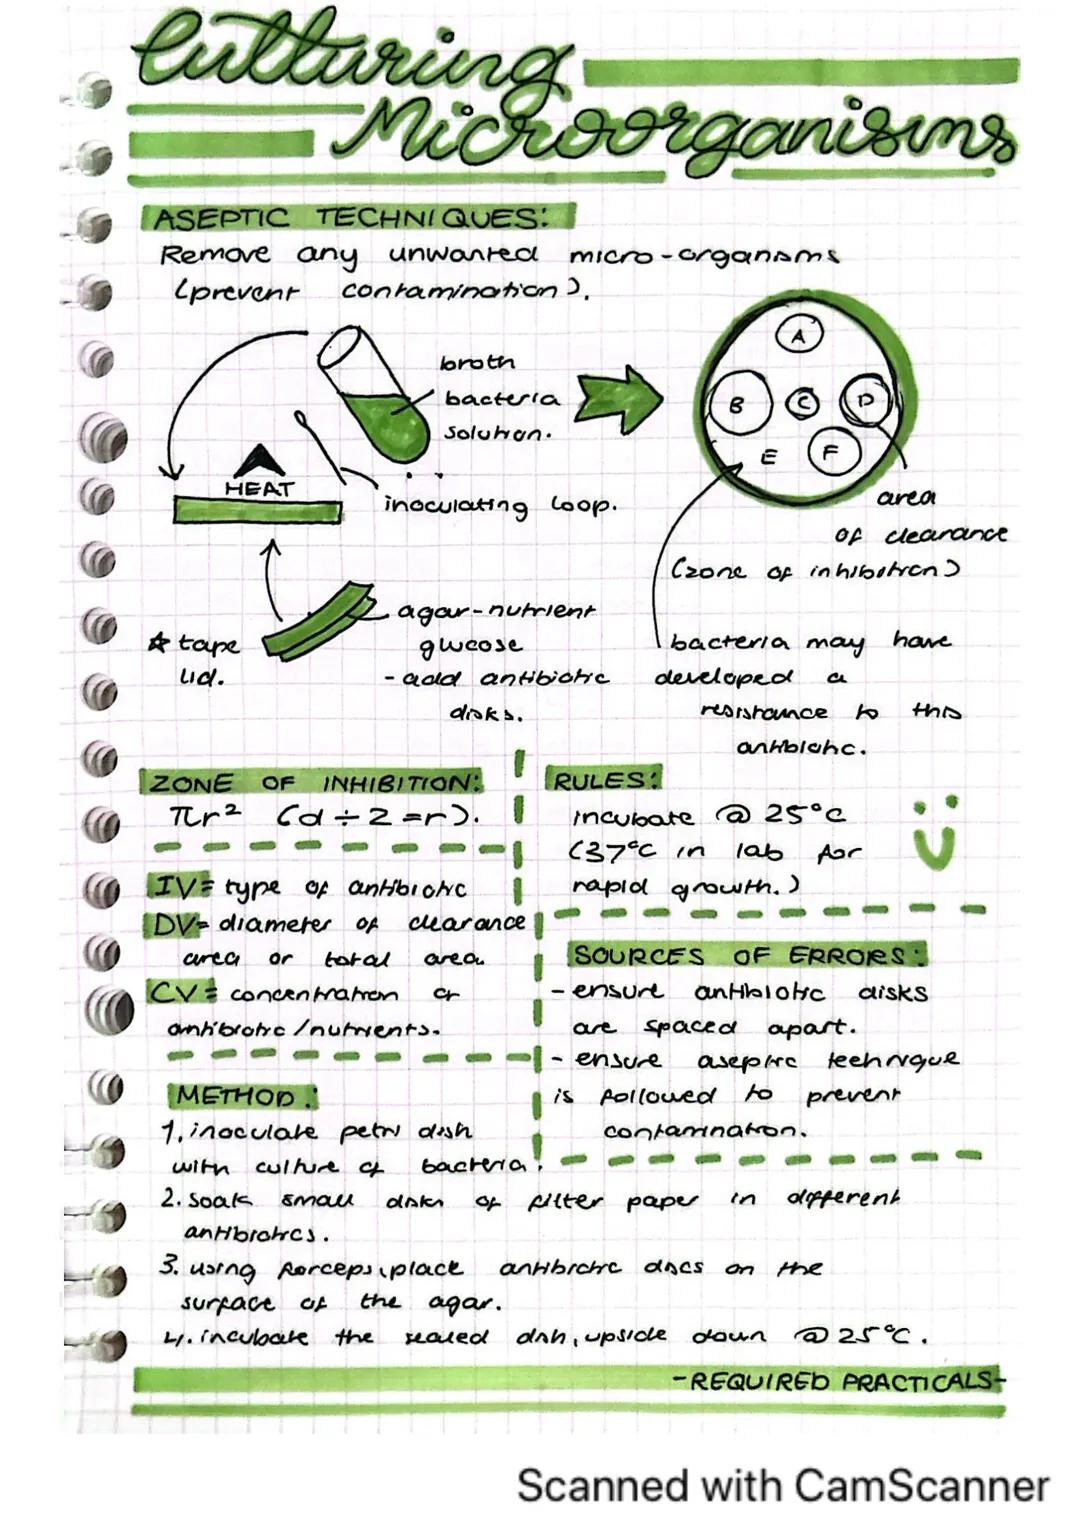 Culturing
Microorganisms
ASEPTIC TECHNIQUES:
Remove any unwanted micro-organisms
(prevent contamination).
broth
bacteria
solution.
HEAT
inoculating loop.
A
B
C
D
E
F
area
of clearance
(zone of inhibition)
agar-nutrient
glucose
- add antibiotic
disks.
☆ tape
lid.
bacteria may have
developed a
resistance to this
antibiotic.
ZONE OF INHIBITION:
πr² (d÷2=r).
IV= type of antibiotic
DV= diameter of clearance
area or total area.
CV= concentration or
antibiotic/nutrients.
RULES:
incubate @ 25°C
(37°C in lab for
rapid growth.)
SOURCES OF ERRORS:
- ensure antibiotic disks
are spaced apart.
- ensure aseptic technique
is followed to prevent
contamination.
METHOD:
1. inoculate petri dish
with culture of bacteria.
2. soak small disks of filter paper in different
antibiotics.
3. using forceps, place antibiotic discs on the
surface of the agar.
4. incubate the sealed dish, upside down @ 25°C.
-REQUIRED PRACTICALS-
Scanned with CamScanner